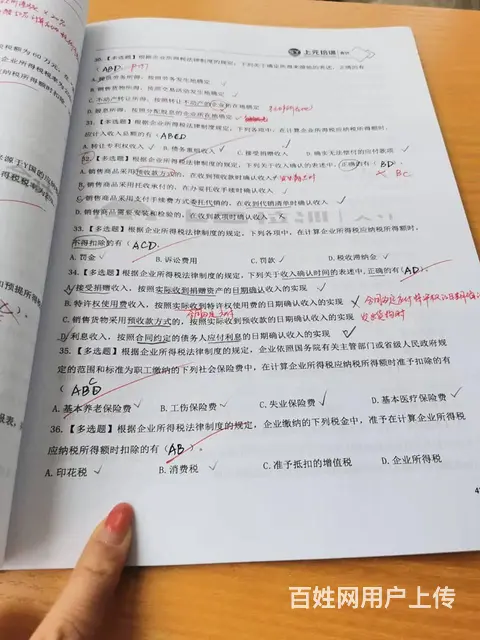 上元信境
30.【多选题】根据企业所得税法律制度的规定，下列关于确定所得来源地的表述中，正确的
有（ABD
A.提供劳务所得，按照劳务发生地确定 ✓
B.销售货物所得，按照交易活动发生地确定
C.不动产转让所得，按照转让不动产的企业所在地确定
D.股息所得，按照分配股息的企业所在地确定
31.【多选题】根据企业所得税法律制度规定，下列各项中，在计算企业所得税应纳税所得额时，
应计入收入总额的有（ABCD
A.转让专利权收入 B.债务重组收入 ✓ C.接受捐赠收入 D.确实无法偿付的应付款项
32.【多选题】根据企业所得税法律制度的规定，下列关于收入确认的表述中，正确的有（BD）.
A.销售商品采用预收款方式的，在收到预收款时确认收入 × BC
B.销售商品采用托收承付的，在办妥托收手续时确认收入
C.销售商品采用支付手续费方式委托代销的，在收到代销清单时确认收入 ✓
D.销售商品需要安装和检验的，在收到款项时确认收入
33.【多选题】根据企业所得税法律制度的规定，下列各项中，在计算企业所得税应纳税所得额时，
不得扣除的有（ACD.
A.罚金 ✓ B.诉讼费用 C.罚款 ✓ D.税收滞纳金 ✓
34.【多选题】根据企业所得税法律制度的规定，下列关于收入确认时间的表述中，正确的有（AD）.
A.接受捐赠收入，按照实际收到捐赠资产的日期确认收入的实现 ✓
B.特许权使用费收入，按照实际收到特许权使用费的日期确认收入的实现 ×
C.销售货物采用预收款方式的，按照实际收到预收款的日期确认收入的实现 发出货物时
D.利息收入，按照合同约定的债务人应付利息的日期确认收入的实现 ✓
35.【多选题】根据企业所得税法律制度的规定，企业依照国务院有关主管部门或省级人民政府规
定的范围和标准为职工缴纳的下列社会保险费中，在计算企业所得税应纳税所得额时准予扣除的有
（ABCD
A.基本养老保险费 ✓ B.工伤保险费 ✓ C.失业保险费 ✓ D.基本医疗保险费 ✓
36.【多选题】根据企业所得税法律制度的规定，企业缴纳的下列税金中，准予在计算企业所得税
应纳税所得额时扣除的有（AB）.
A.印花税 ✓ B.消费税 ✓ C.准予抵扣的增值税 D.企业所得税
百姓网用户上传